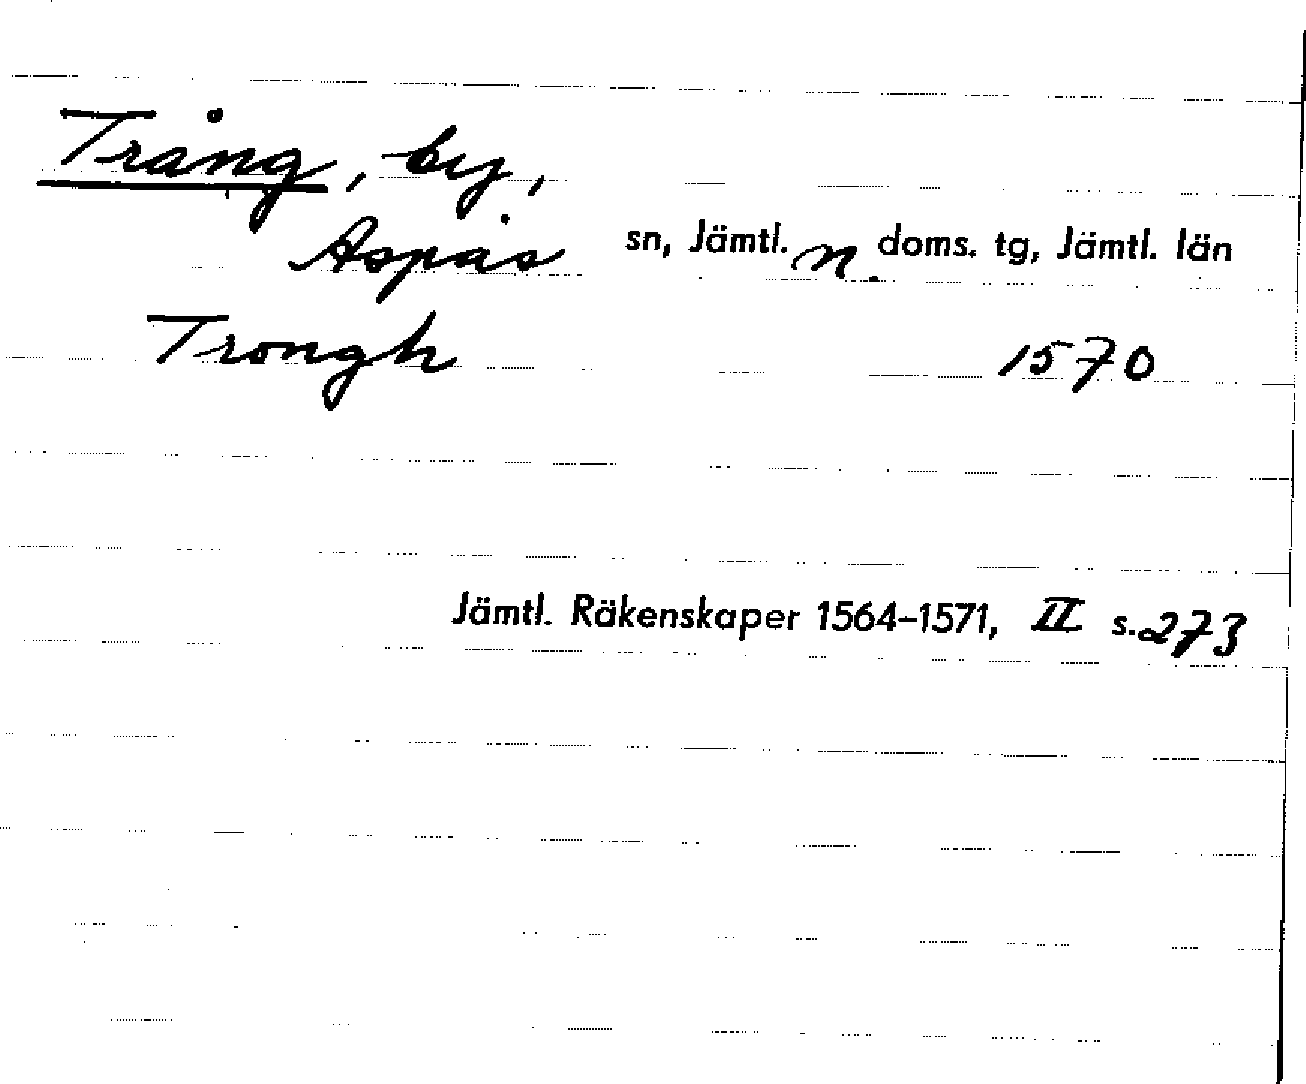 Trång, by,
Aspås sn, Jämtl. n. doms. tg, Jämtl. län
Trongh 1570
Jämtl. Räkenskaper 1564-1571, II s. 273